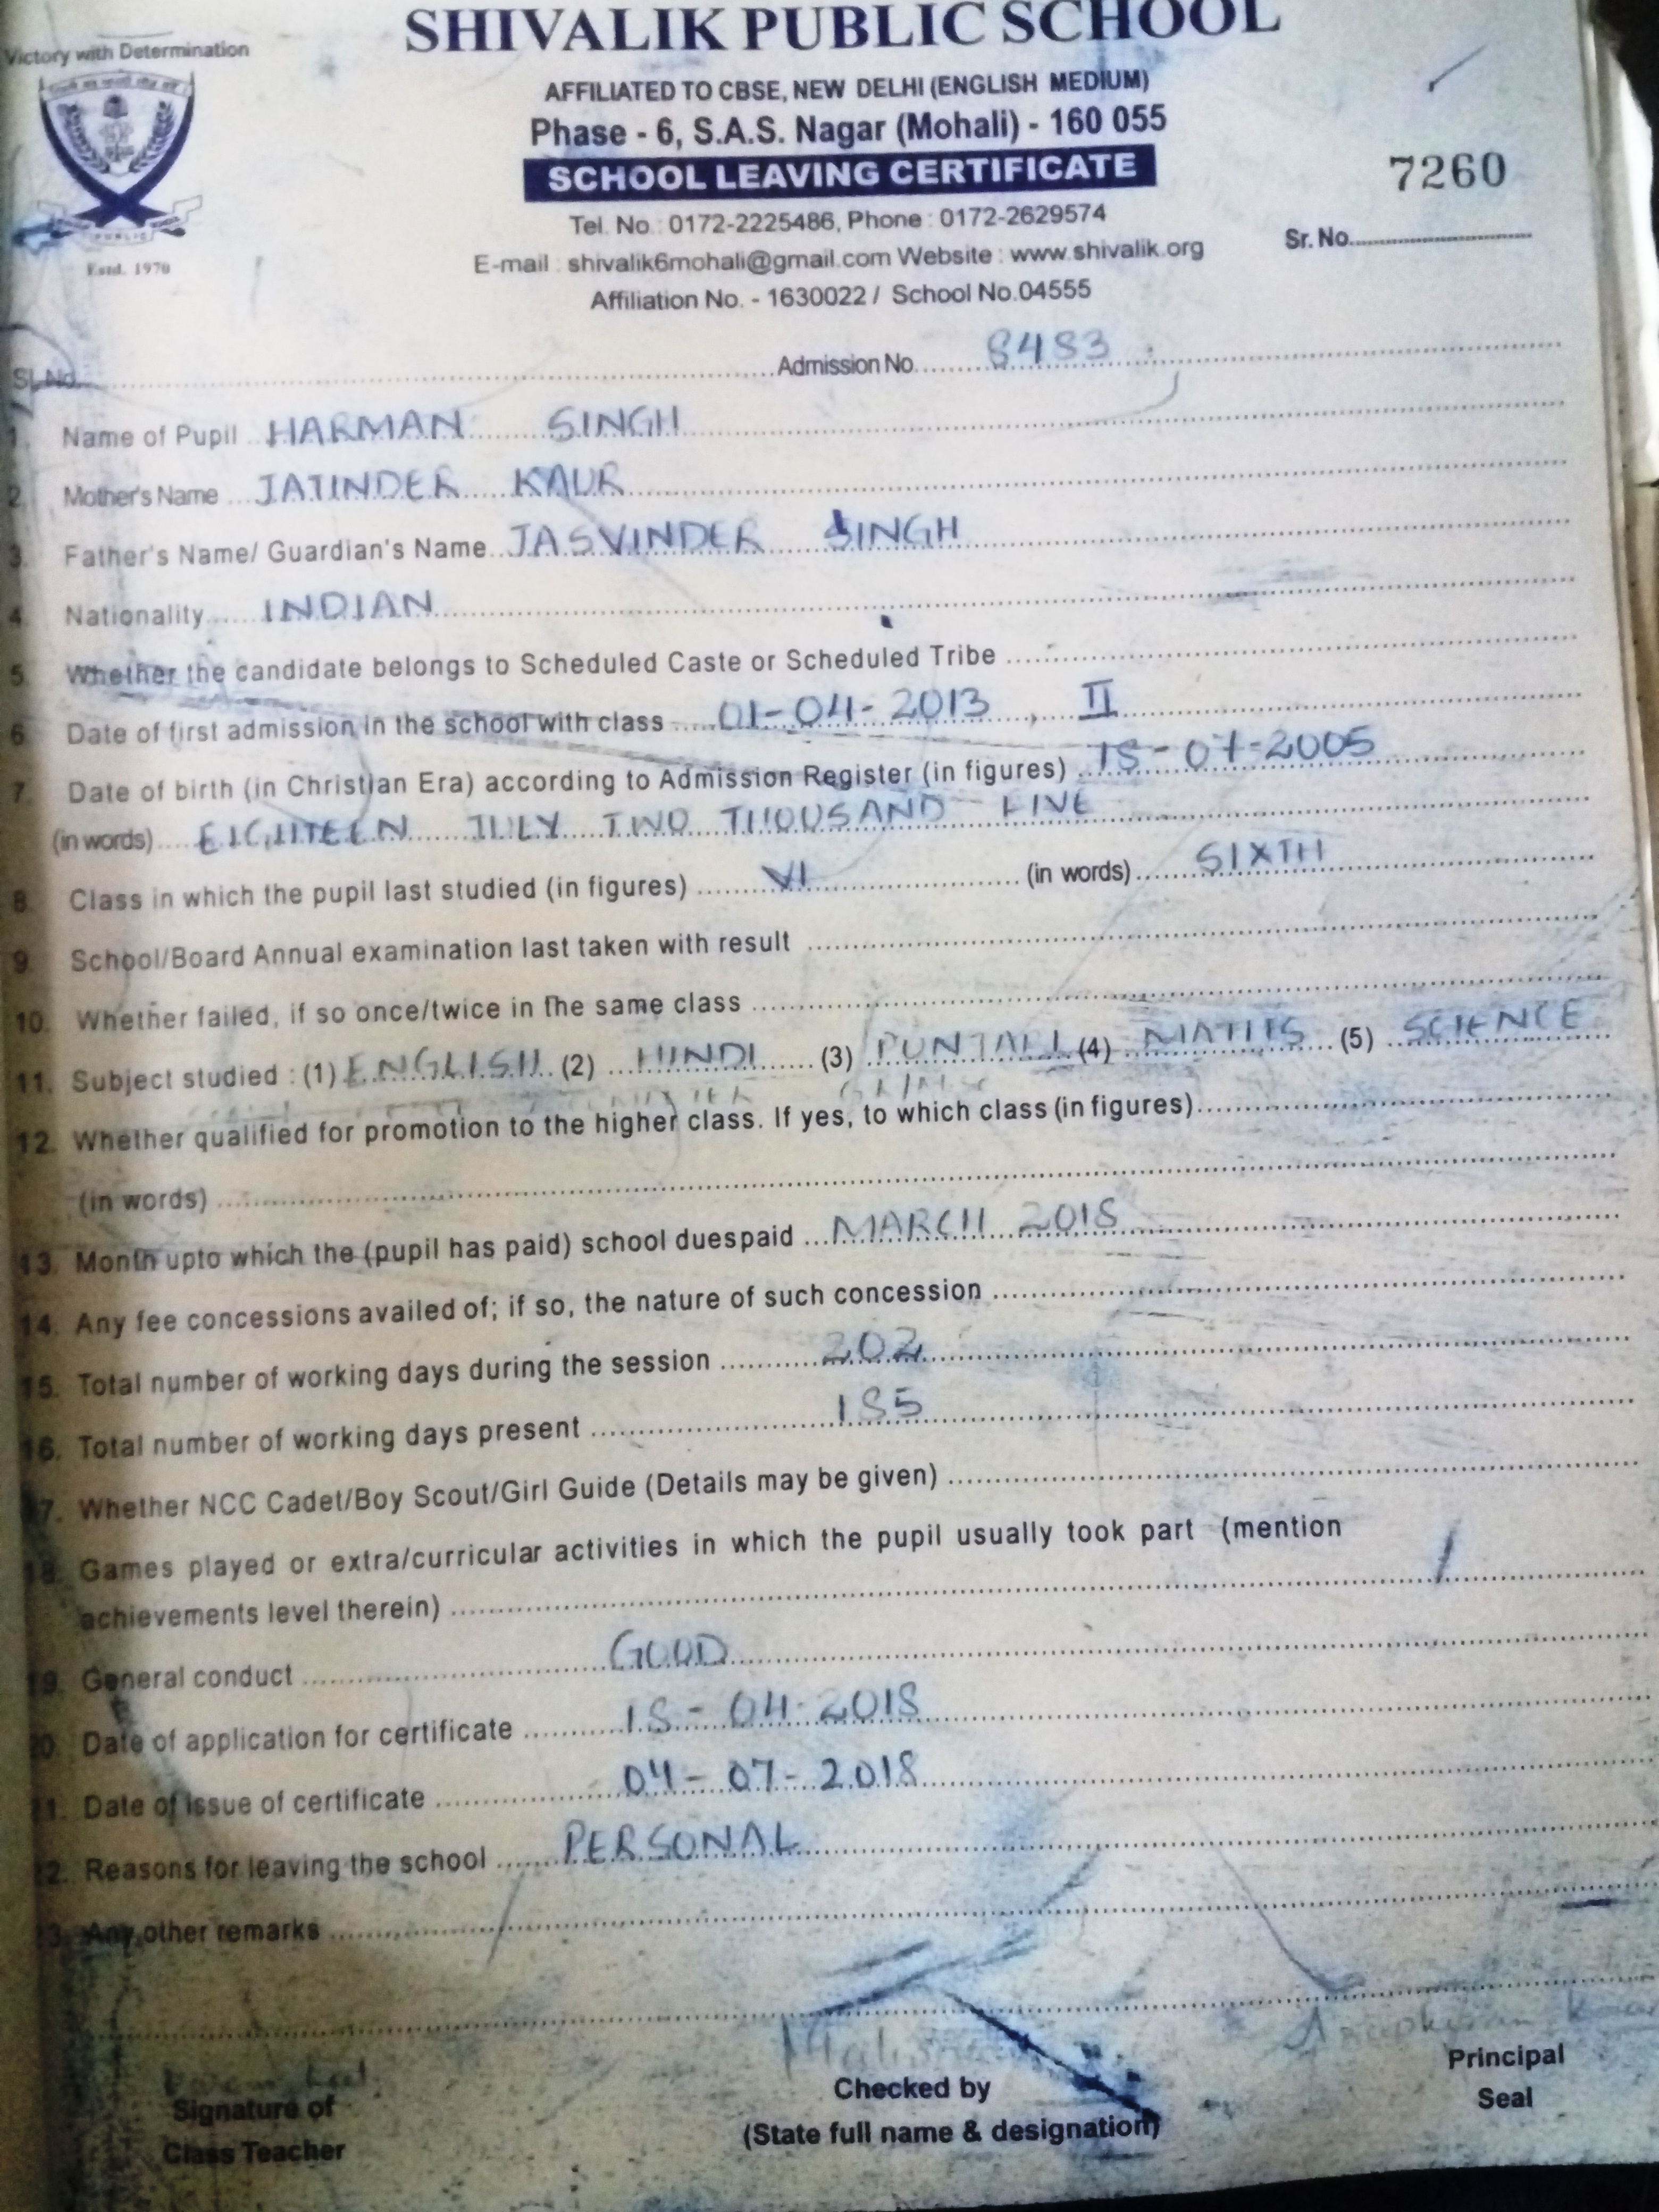 SHIVALIK PUBLIC SCHOOL
Victory with Determination
AFFILIATED TO CBSE, NEW DELHI (ENGLISH MEDIUM)
Phase - 6, S.A.S. Nagar (Mohali) - 160 055
SCHOOL LEAVING CERTIFICATE
7260
Tel. No.: 0172-2225486, Phone : 0172-2629574
Sr. No.
E-mail : shivalik6mohali@gmail.com Website : www.shivalik.org
PUBLIC
Estd. 1970
Affiliation No. - 1630022 / School No.04555
Sl. No. Admission No. 8483
1. Name of Pupil HARMAN SINGH
2. Mother's Name JATINDER KAUR
3. Father's Name/ Guardian's Name JASVINDER SINGH
4. Nationality INDIAN
5. Whether the candidate belongs to Scheduled Caste or Scheduled Tribe
6. Date of first admission in the school with class 01-04-2013, II
7. Date of birth (in Christian Era) according to Admission Register (in figures) 18-07-2005
(in words) EIGHTEEN JULY TWO THOUSAND FIVE
8. Class in which the pupil last studied (in figures) VI (in words) SIXTH
9. School/Board Annual examination last taken with result
10. Whether failed, if so once/twice in the same class
11. Subject studied : (1) ENGLISH (2) HINDI (3) PUNJABI (4) MATHS (5) SCIENCE
12. Whether qualified for promotion to the higher class. If yes, to which class (in figures)
(in words)
13. Month upto which the (pupil has paid) school duespaid MARCH 2018
14. Any fee concessions availed of; if so, the nature of such concession
15. Total number of working days during the session 202
16. Total number of working days present 185
17. Whether NCC Cadet/Boy Scout/Girl Guide (Details may be given)
18. Games played or extra/curricular activities in which the pupil usually took part (mention
achievements level therein)
19. General conduct GOOD
20. Date of application for certificate 18-04-2018
21. Date of issue of certificate 04-07-2018
22. Reasons for leaving the school PERSONAL
23. Any other remarks
Signature of
Class Teacher
Checked by
(State full name & designation)
Principal
Seal